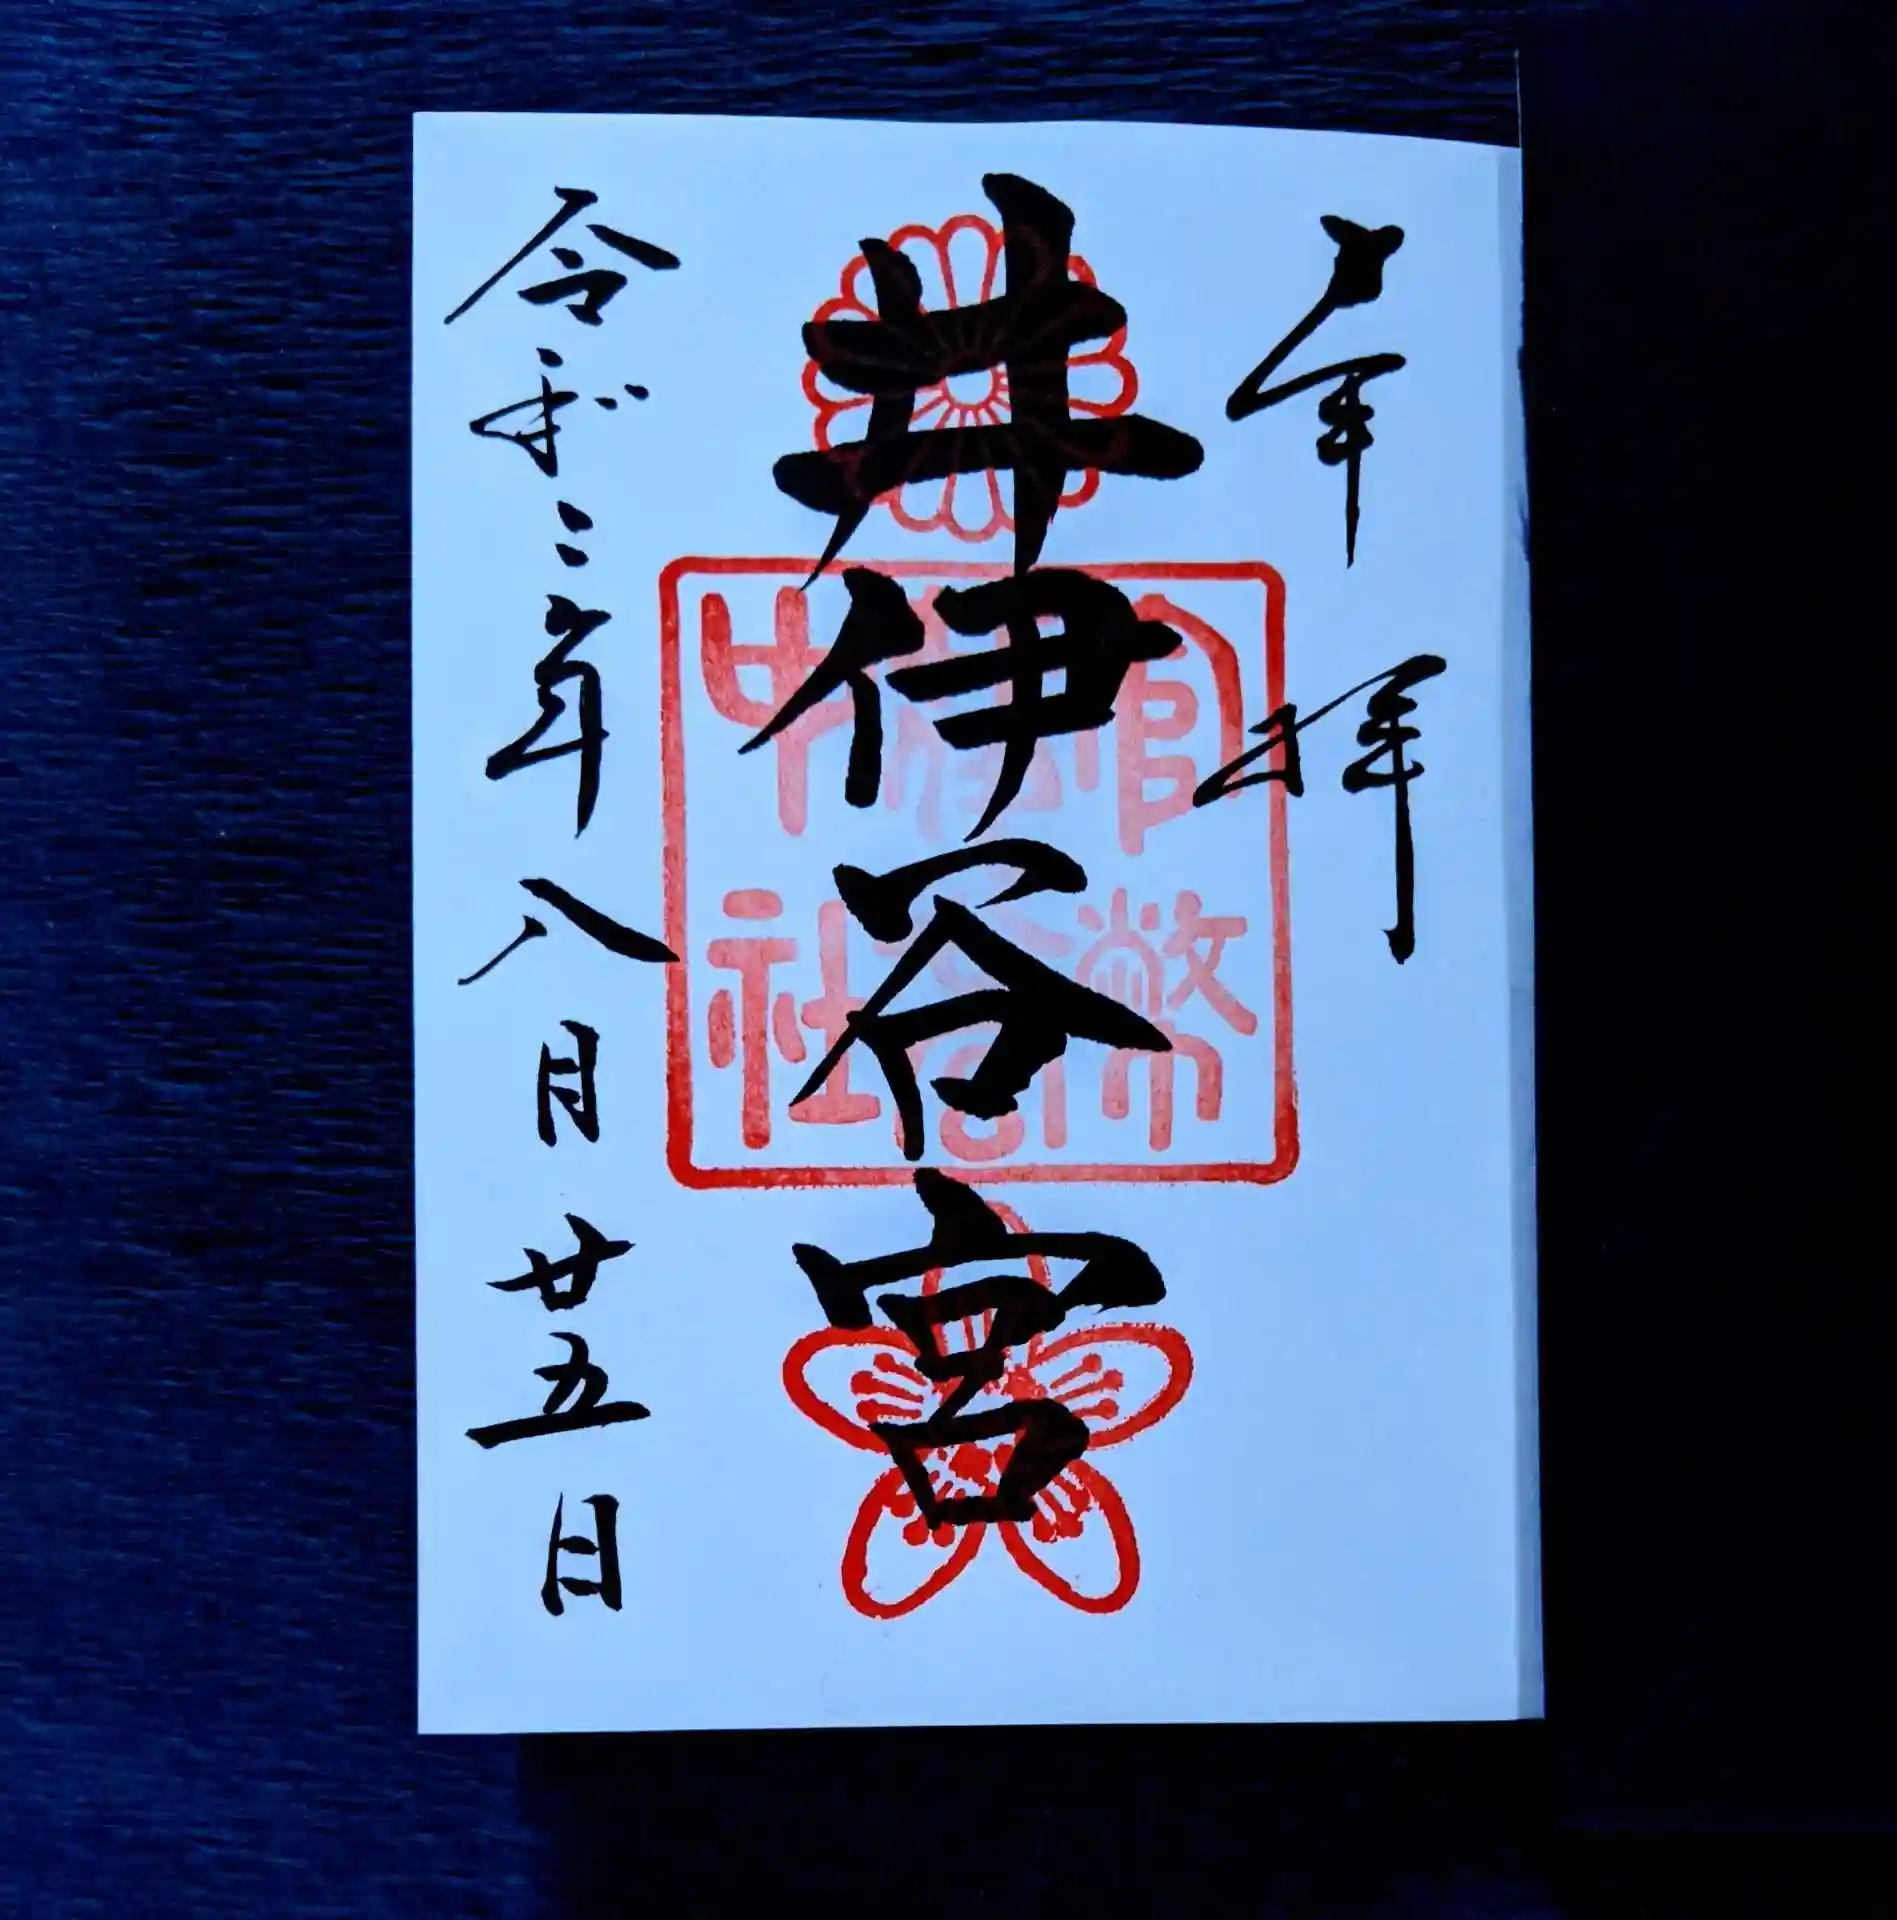 奉拝
井伊谷宮
令和二年八月廿五日
官幣
中社